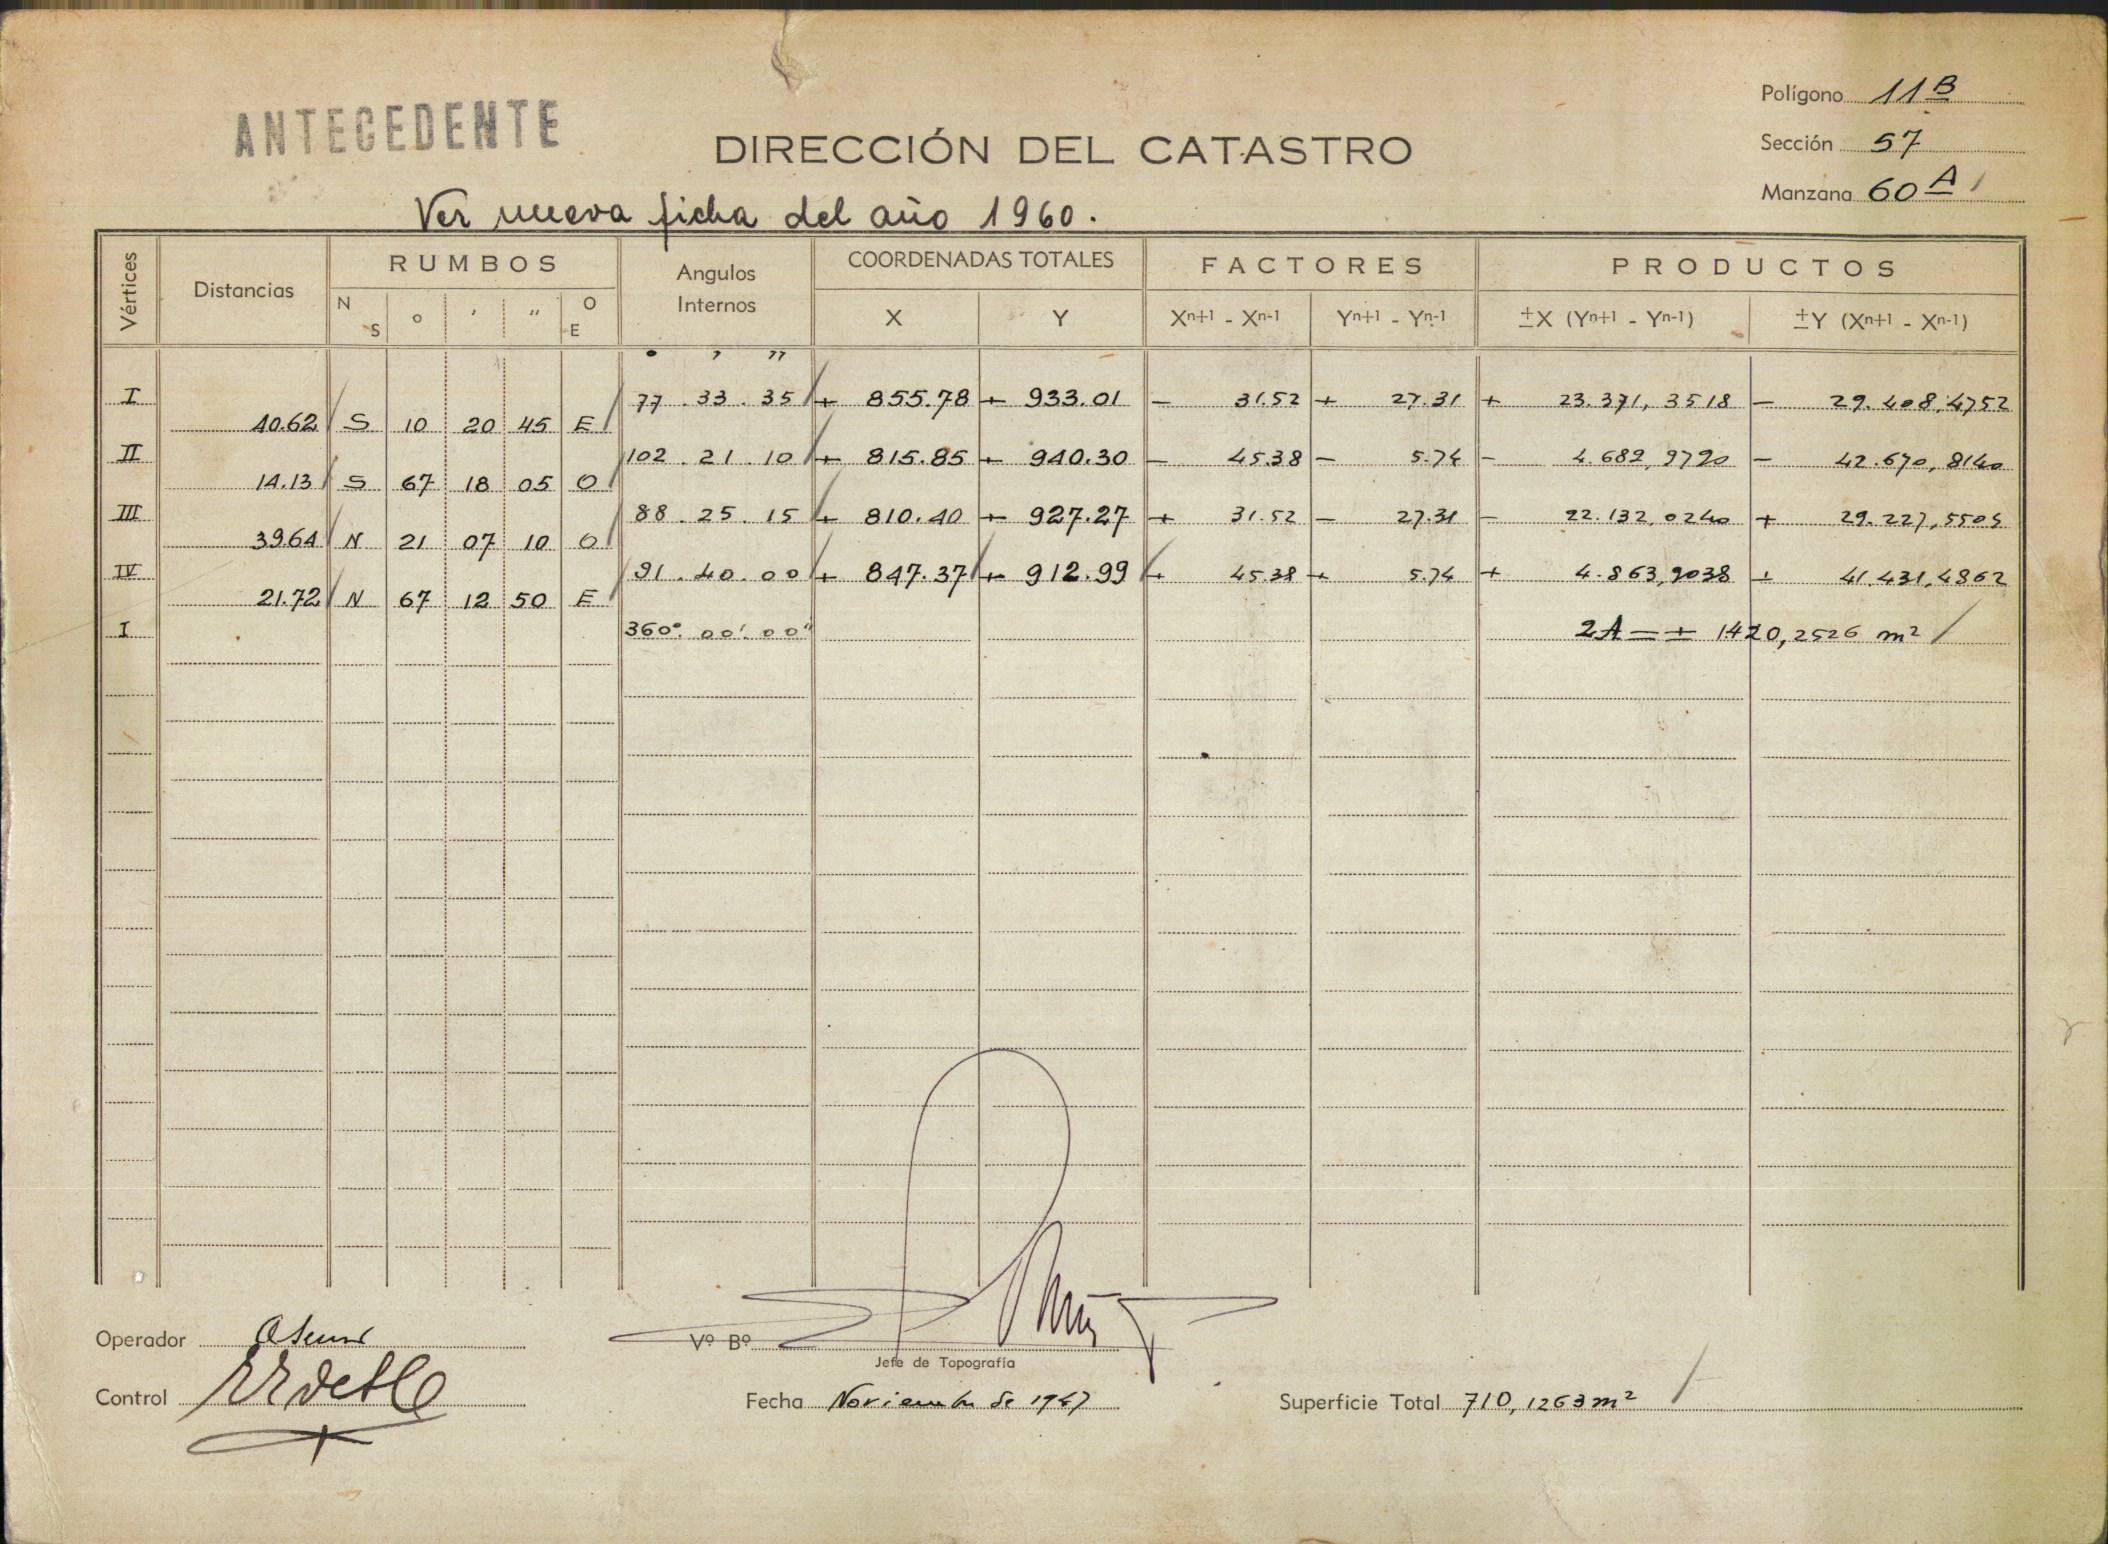 ANTECEDENTE
DIRECCIÓN DEL CATASTRO
Polígono 11 B
Sección 57
Manzana 60 A
Ver nueva ficha del año 1960.
Vértices Distancias RUMBOS Angulos Internos COORDENADAS TOTALES FACTORES PRODUCTOS
N S ° ' " O E X Y Xn+1 - Xn-1 Yn+1 - Yn-1 ±X (Yn+1 - Yn-1) ±Y (Xn+1 - Xn-1)
° ' "
I 77.33.35 + 855.78 + 933.01 - 31.52 + 27.31 + 23.371,3518 - 29.408,4752
40.62 S 10 20 45 E
II 102.21.10 + 815.85 + 940.30 - 45.38 - 5.74 - 4.682,9790 - 42.670,8140
14.13 S 67 18 05 O
III 88.25.15 + 810.40 + 927.27 + 31.52 - 27.31 - 22.132,0240 + 29.227,5504
39.64 N 21 07 10 O
IV 91.40.00 + 847.37 + 912.99 + 45.38 + 5.74 + 4.863,9038 + 41.431,4862
21.72 N 67 12 50 E
I 360°.00'.00" 2A = + 1420,2526 m²
Operador
Vº Bº
Jefe de Topografía
Control
Fecha Noviembre de 1947
Superficie Total 710,1263 m²